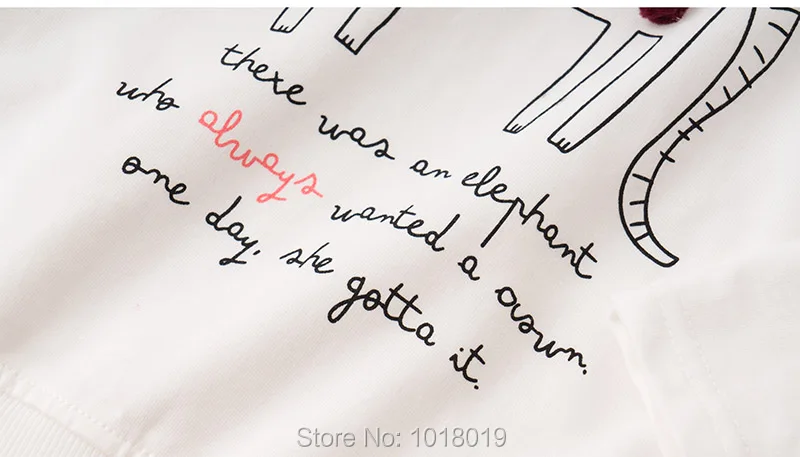 there was an elephant
who always wanted a oswn.
one day, she gotta it.
Store No: 1018019